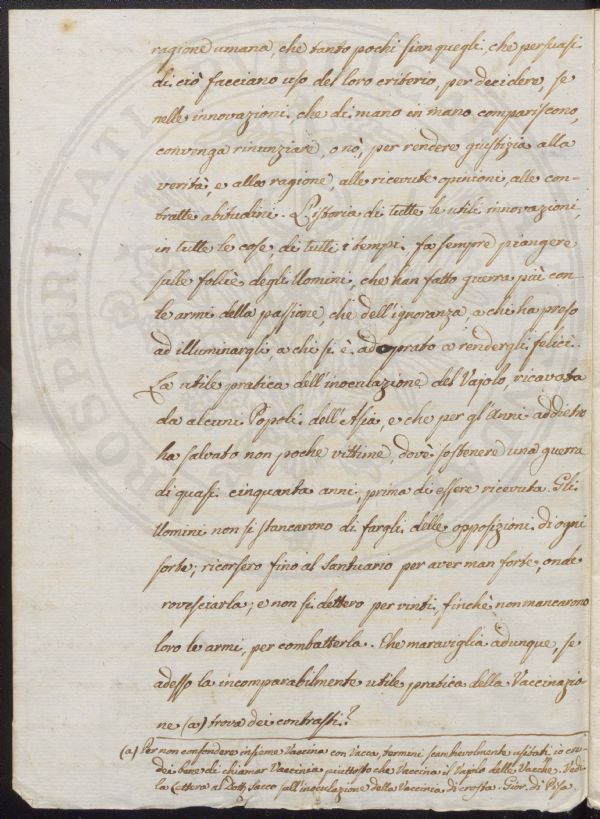 ragione umana, che tanto pochi sian quegli, che persuasi
di ciò facciano uso del loro criterio, per decidere, se
nelle innovazioni, che di mano in mano compariscono,
convenga rinunziare, o nò, per rendere giustizia alla
verità, e alla ragione, alle ricevute opinioni, alle con-
tratte abitudini. L'istoria di tutte le utili innovazioni,
in tutte le cose, di tutti i tempi fa sempre piangere
sulle follie degli Uomini, che han fatto guerra più con
le armi della passione, che dell'ignoranza, a chi ha preso
ad illuminargli, a chi si è adoprato a rendergli felici.
La utile pratica dell'inoculazione del Vajolo, ricavata
da alcuni Popoli dell'Asia, e che per gl'Anni addietro
ha salvato non poche vittime, dovè sostenere una guerra
di quasi cinquanta anni, prima di essere ricevuta. Gli
Uomini non si stancarono di fargli delle opposizioni di ogni
sorte; ricorsero fino al Santuario per aver man forte, onde
rovesciarla; e non si dettero per vinti, finchè non mancarono
loro le armi, per combatterla. Che maraviglia adunque, se
adesso la incomparabilmente utile pratica della Vaccinazio
ne (a) trova dei contrasti?
(a) Per non confondere insieme Vaccina con Vacca, termini scambievolmente usitati, io cre-
dei bene di chiamar Vaccinia piuttosto che Vaccina il Vajolo delle Vacche. Vedi
la Lettera al Dott. Sacco sull'inoculazione della Vaccinia di crosta. Gior. di Pisa.
PROSPERITATI PUBLICAE